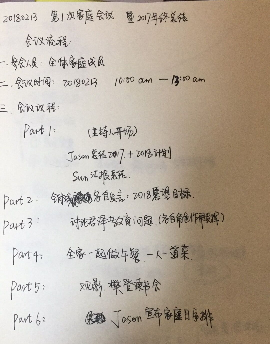 20180213 第1次家庭会议 暨2017年终总结
会议流程
一.参会人员 全体家庭成员
二.会议时间: 20180213 10:00 am — 13:00 am
三 会议议程:
Part 1: (主持人开场)
Jason总结2017+2018计划
Sun汇报总结.
Part 2: 各自发言: 2018愿望目标.
Part 3 讨论 教育问题
Part 4: 全家一起做午餐 一人一道菜.
Part 5: 观影 樊登读书会
Part 6: Jason宣布家庭日安排